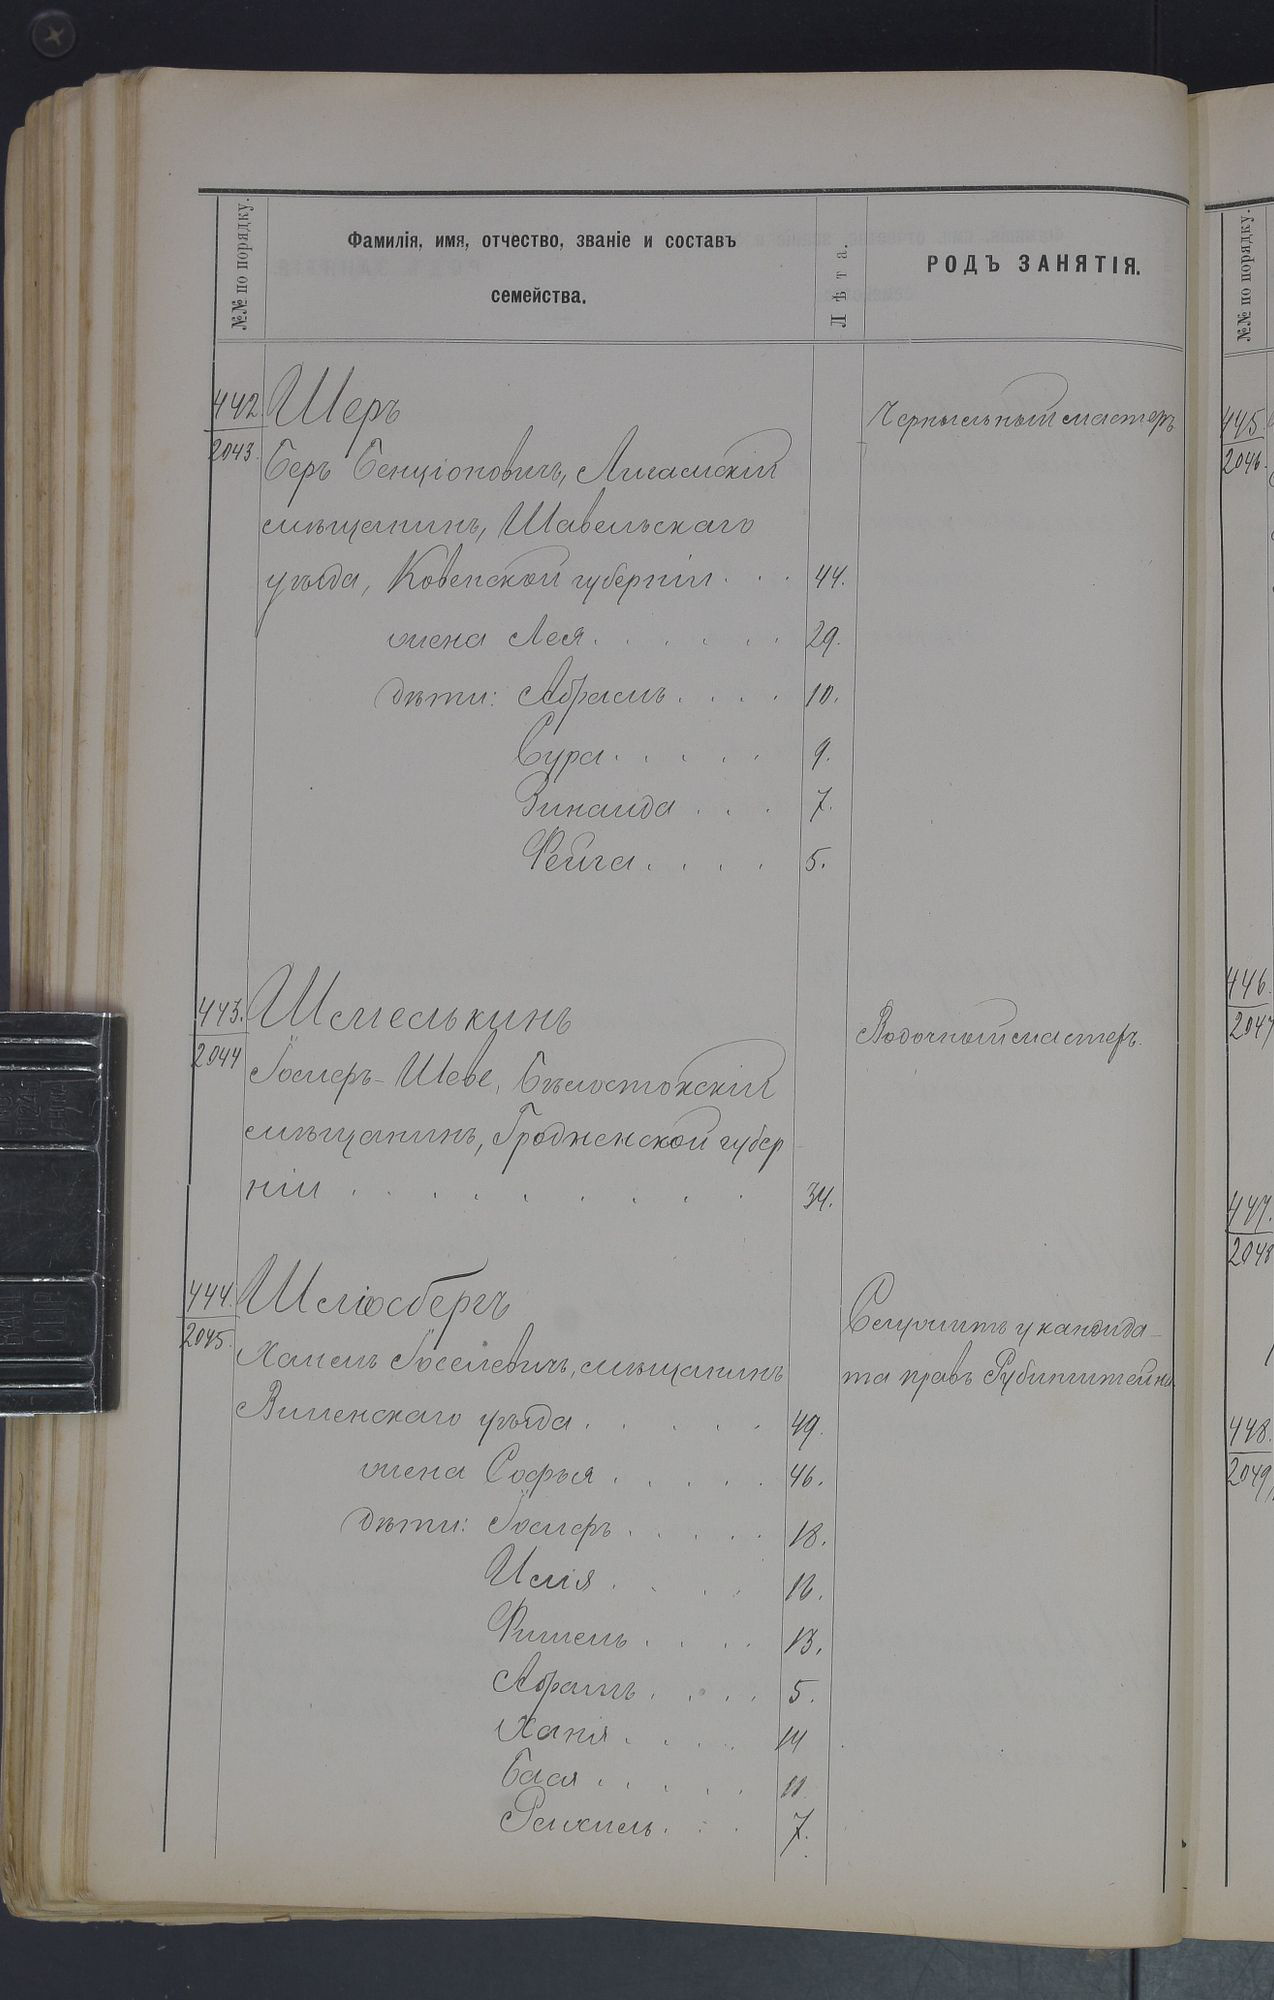 №№ по порядку.
Фамилія, имя, отчество, званіе и составъ
семейства.
Лѣта.
РОДЪ ЗАНЯТІЯ.
442.
2043.
Шеръ
Чернильный мастеръ
Беръ Бенціоновичъ,
мѣщанинъ, Шавельскаго
уѣзда, Ковенской губерніи . . . 44.
жена Лея . . . . . . 29.
дѣти: Абрамъ . . . . 10.
Сура . . . . . 9.
Зинаида . . . 7.
Фейга . . . . 5.
443.
2044
Шмелькинъ
Водочный мастеръ.
Іосифъ-Шеве, Бѣлостокскій
мѣщанинъ, Гродненской губер-
ніи . . . . . . . . . 34.
444.
2045.
Шліосбергъ
Служитъ у кандида-
та правъ Рубинштейна
Іоселевичъ, мѣщанинъ
Виленскаго уѣзда . . . . . 49.
жена Софья . . . . . 46.
дѣти: Іосифъ . . . . . 18.
Илія . . . . 16.
. . . . 13.
Абрамъ . . . . 5.
Ханя . . . . 14
Бася . . . . . 11.
. . . 7.
№№ по порядку.
445.
2046.
446.
2047
447.
2048
448.
2049